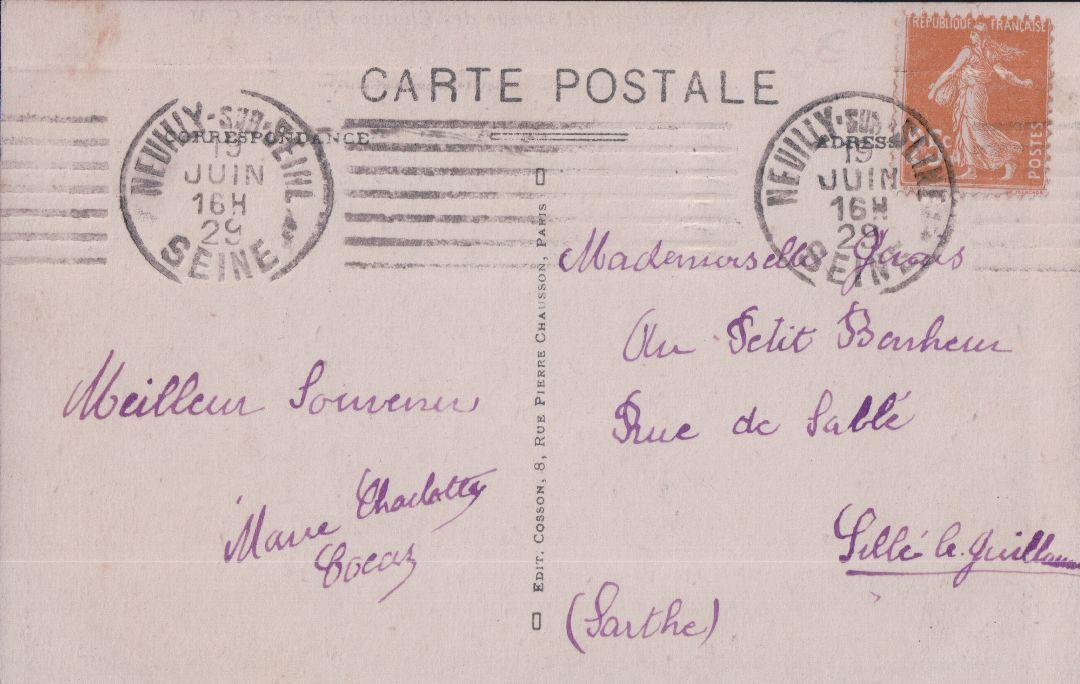 RÉPUBLIQUE FRANÇAISE
POSTES
CARTE POSTALE
CORRESPONDANCE
ADRESSE
NEUILLY-SUR-SEINE
19
JUIN
16H
29
SEINE
NEUILLY-SUR-SEINE
19
JUIN
16H
29
SEINE
Meilleur Souvenir
Marie Charlotte
EDIT. COSSON, 8, RUE PIERRE CHAUSSON, PARIS
Mademoiselle
Au Petit Bonheur
Rue de Sablé
Sillé-le-Guillaume
(Sarthe)